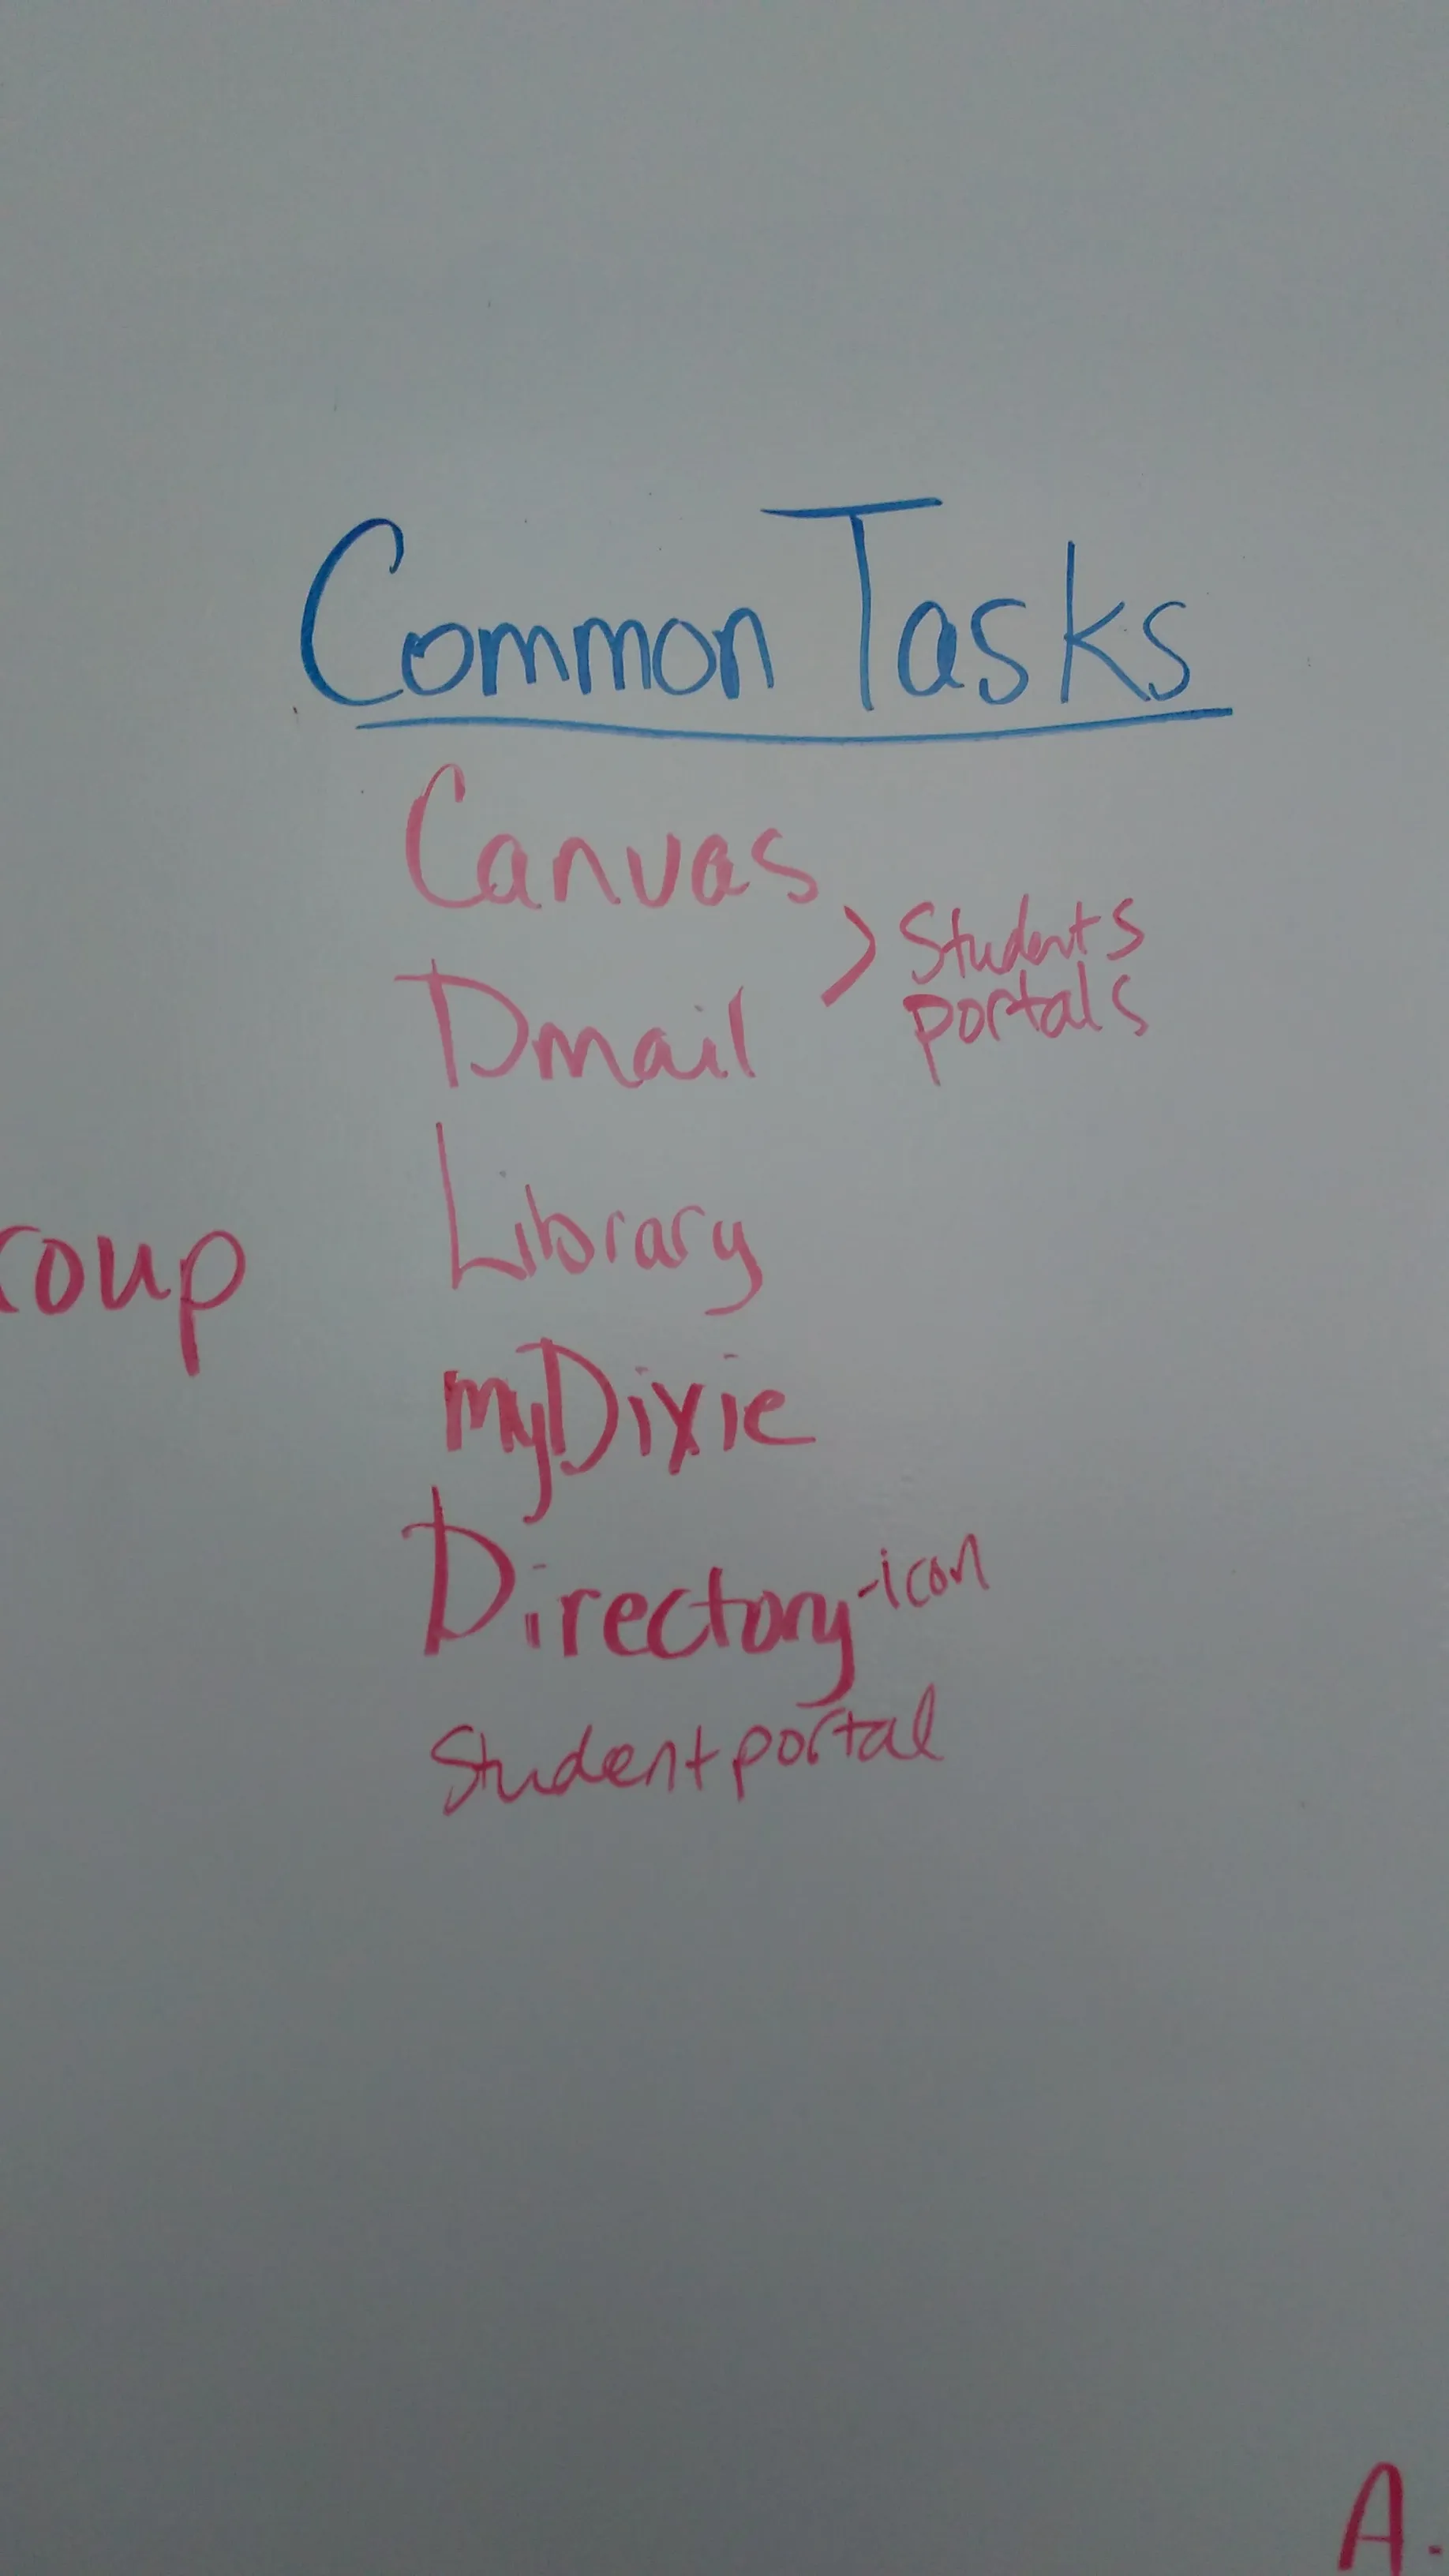 Common Tasks
Canvas
Students
portals
Dmail
Library
roup
myDixie
Directory -icon
Student portal
A.